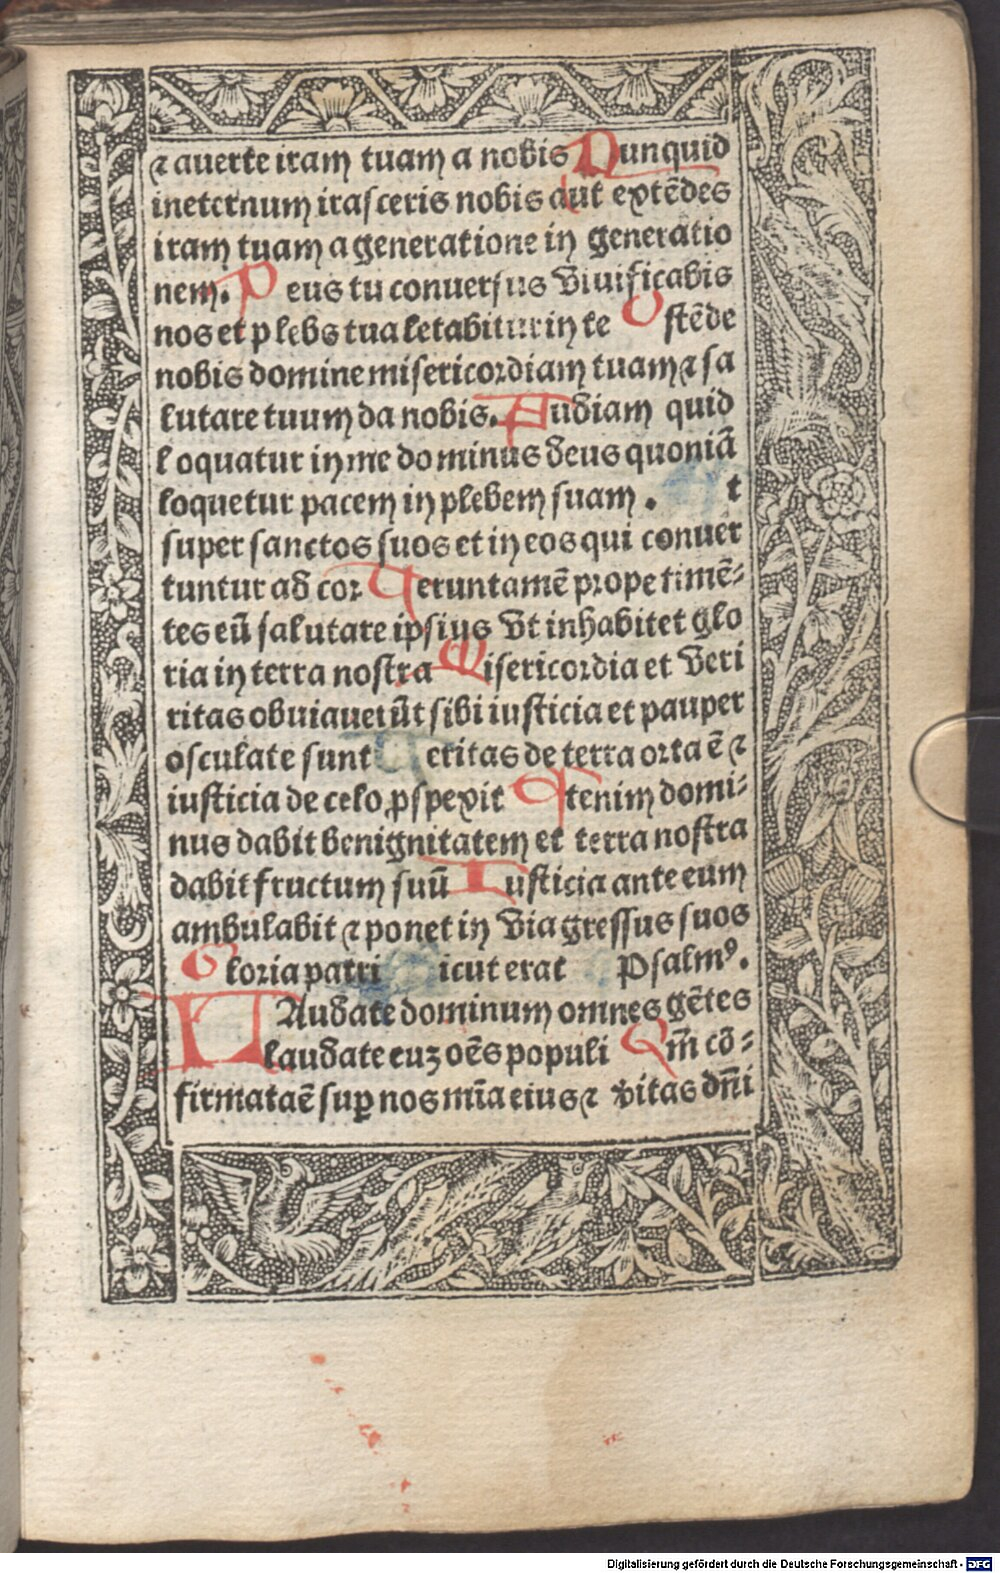 ⁊ auerte iram tuam a nobis Nunquid
ineternum irasceris nobis aut extēdes
iram tuam a generatione in generatio
nem. Deus tu conuersus viuificabis
nos et plebs tua letabitur in te Ostēde
nobis domine misericordiam tuam ⁊ sa
lutare tuum da nobis. Audiam quid
loquatur in me dominus deus quoniā
loquetur pacem in plebem suam . Et
super sanctos suos et in eos qui conuer
tuntur ad cor Veruntamē prope timē⸗
tes eū salutare ipsius vt inhabitet glo
ria in terra nostra Misericordia et veri
ritas obuiauerūt sibi iusticia et pauper
osculate sunt Veritas de terra orta ē ⁊
iusticia de celo ꝓspexit Etenim domi⸗
nus dabit benignitatem et terra nostra
dabit fructum suū Iusticia ante eum
ambulabit ⁊ ponet in via gressus suos
Gloria patri Sicut erat Psalmꝰ.
LAudate dominum omnes gētes
laudate euz oēs populi Qm̄ cō⸗
firmata ē suꝑ nos mīa eius ⁊ vitas dn̄i
Digitalisierung gefördert durch die Deutsche Forschungsgemeinschaft - DFG